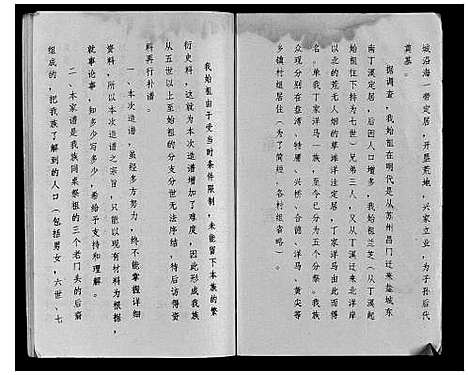 城沿海一带定居，开垦荒地，兴家立业，为子孙后代
奠基。
据调查，我始祖在明代是从苏州昌门迁来盐城东
南丁溪定居，后因人口增多，我始祖兰芝（从丁溪起
始祖住下持为七世）兄弟三人，又从丁溪迁来北洋岸
以北的荒无人烟的草滩洋注定居，丁家洋马由此而得
名。单我丁家洋马一族，至今已分为五个分祭。我族
众现分别在盘湾、特庸、兴桥、合德、洋马、黄尖等
乡镇村组居住（为了简短，各村组省略）。
我始祖由于受当时条件限制，未能留下本族的繁
衍史料，这就为本次造谱增加了难度，因此形成我族
从五世以上至始祖的分支分世无法序结，待后访得资
料再行补谱。
一、本次造谱，虽经多方努力，终不能掌握详细
资料，所以本次造谱之宗旨，只能以现有材料为根据，
就事论事，知多少写多少，希给予支持和理解。
二、本家谱是我族同桌祭祖的三个老门头的后裔
组成的，把我族了解到的人口（包括男女，六世、七